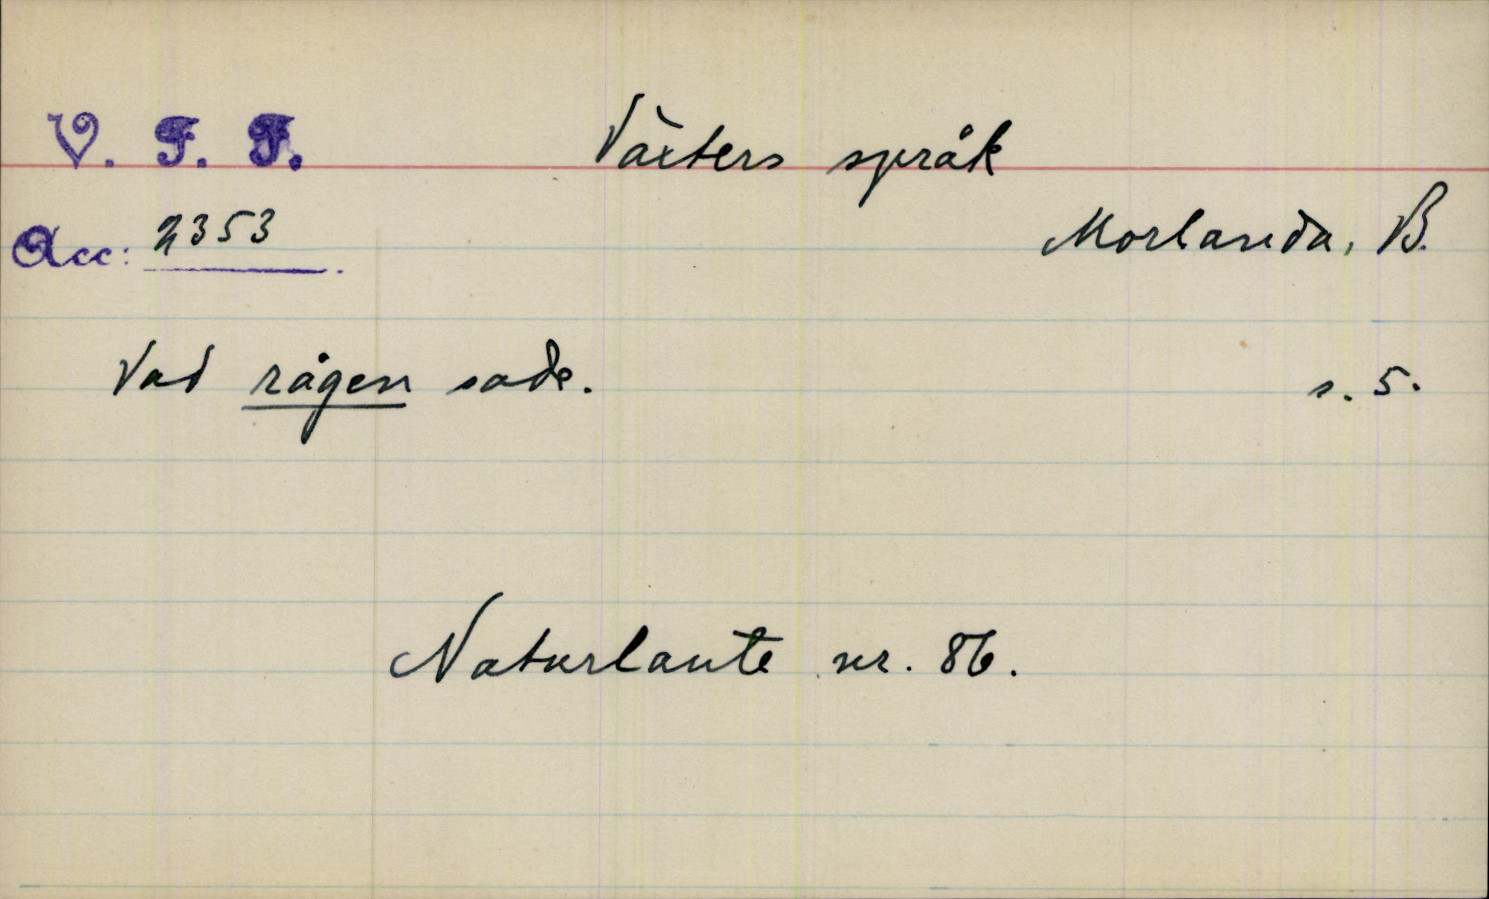 V. F. F. Växters språk
Acc: 2353 Morlanda, B.
Vad rågen sade. s. 5.
Naturlaute nr. 86.